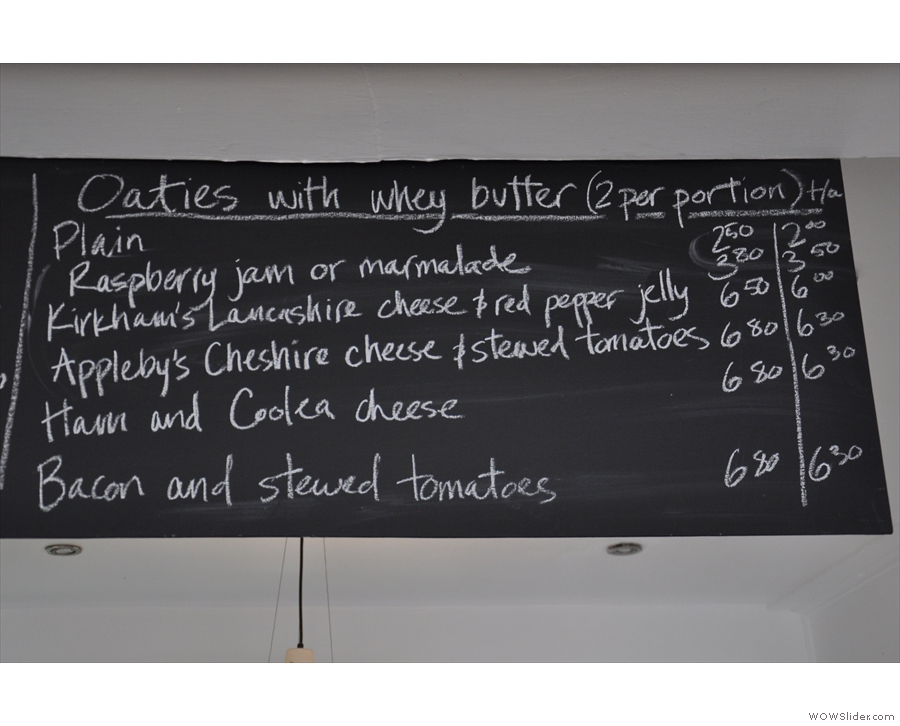 Oaties with whey butter (2 per portion) t/a
Plain 2 50 2 00
Raspberry jam or marmalade 3 80 3 50
Kirkham's Lancashire cheese & red pepper jelly 6 50 6 00
Appleby's Cheshire cheese & stewed tomatoes 6 80 6 30
Ham and Coolea cheese 6 80 6 30
Bacon and stewed tomatoes 6 80 6 30
WOWSlider.com